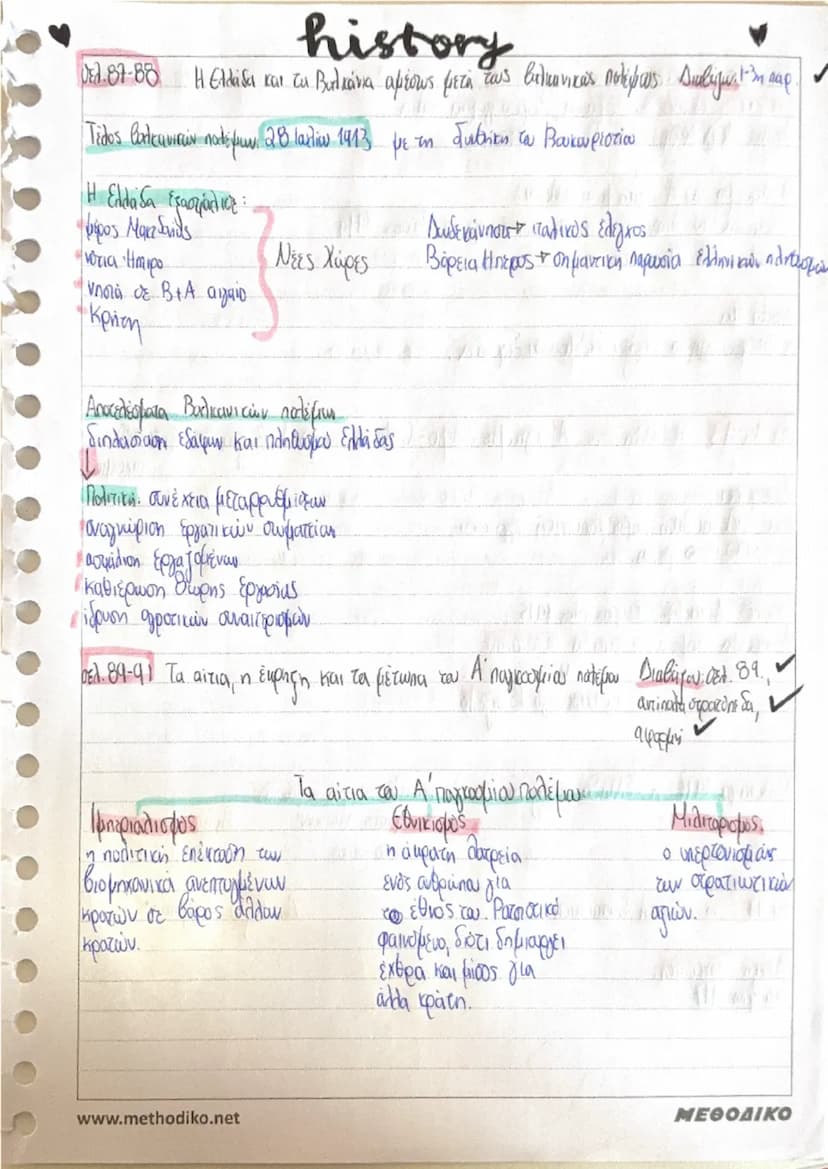 history
σελ.87-88 Η Ελλάδα και τα Βαλκάνια αμέσως μετά τους βαλκανικούς πολέμους Διαβάζω: 1-3η παρ.
Τέλος βαλκανικών πολέμων: 28 Ιουλίου 1913, με τη συνθήκη του Βουκουρεστίου
Η Ελλάδα εξασφάλισε:
μέρος Μακεδονίας Δωδεκάνησα → ιταλικός έλεγχος
νότια Ήπειρο Νέες Χώρες Βόρεια Ήπειρος → σημαντική παρουσία ελληνικών πληθυσμών
νησιά σε Β+Α αιγαίο
Κρήτη
Αποτελέσματα Βαλκανικών πολέμων
διπλασίαση εδάφων και πληθυσμού Ελλάδας
↓
Πολιτική: συνέχεια μεταρρυθμίσεων
αναγνώριση εργατικών σωματείων
ασφάλιση εργαζομένων
καθιέρωση 8ωρης εργασίας
ίδρυση αγροτικών συναιτερισμών
σελ.89-91 Τα αίτια, η έκρηξη και τα μέτωπα του Α' παγκοσμίου πολέμου Διαβάζω: σελ. 89,
αντίπαλα στρατόπεδα,
αφορμή
Τα αίτια του Α' παγκοσμίου πολέμου
Ιμπεριαλισμός Εθνικισμός Μιλιταρισμός:
η πολιτική επέκταση των η άκρατη λατρεία ο υπερτονισμός
βιομηχανικά ανεπτυγμένων ενός ανθρώπου για των στρατιωτικών
κρατών σε βάρος άλλων το έθνος του. Ρατσιστικό αξιών.
κρατών. φαινόμενο, διότι δημιουργεί
έχθρα και μίσος για
άλλα κράτη.
www.methodiko.net ΜΕΘΟΔΙΚΟ